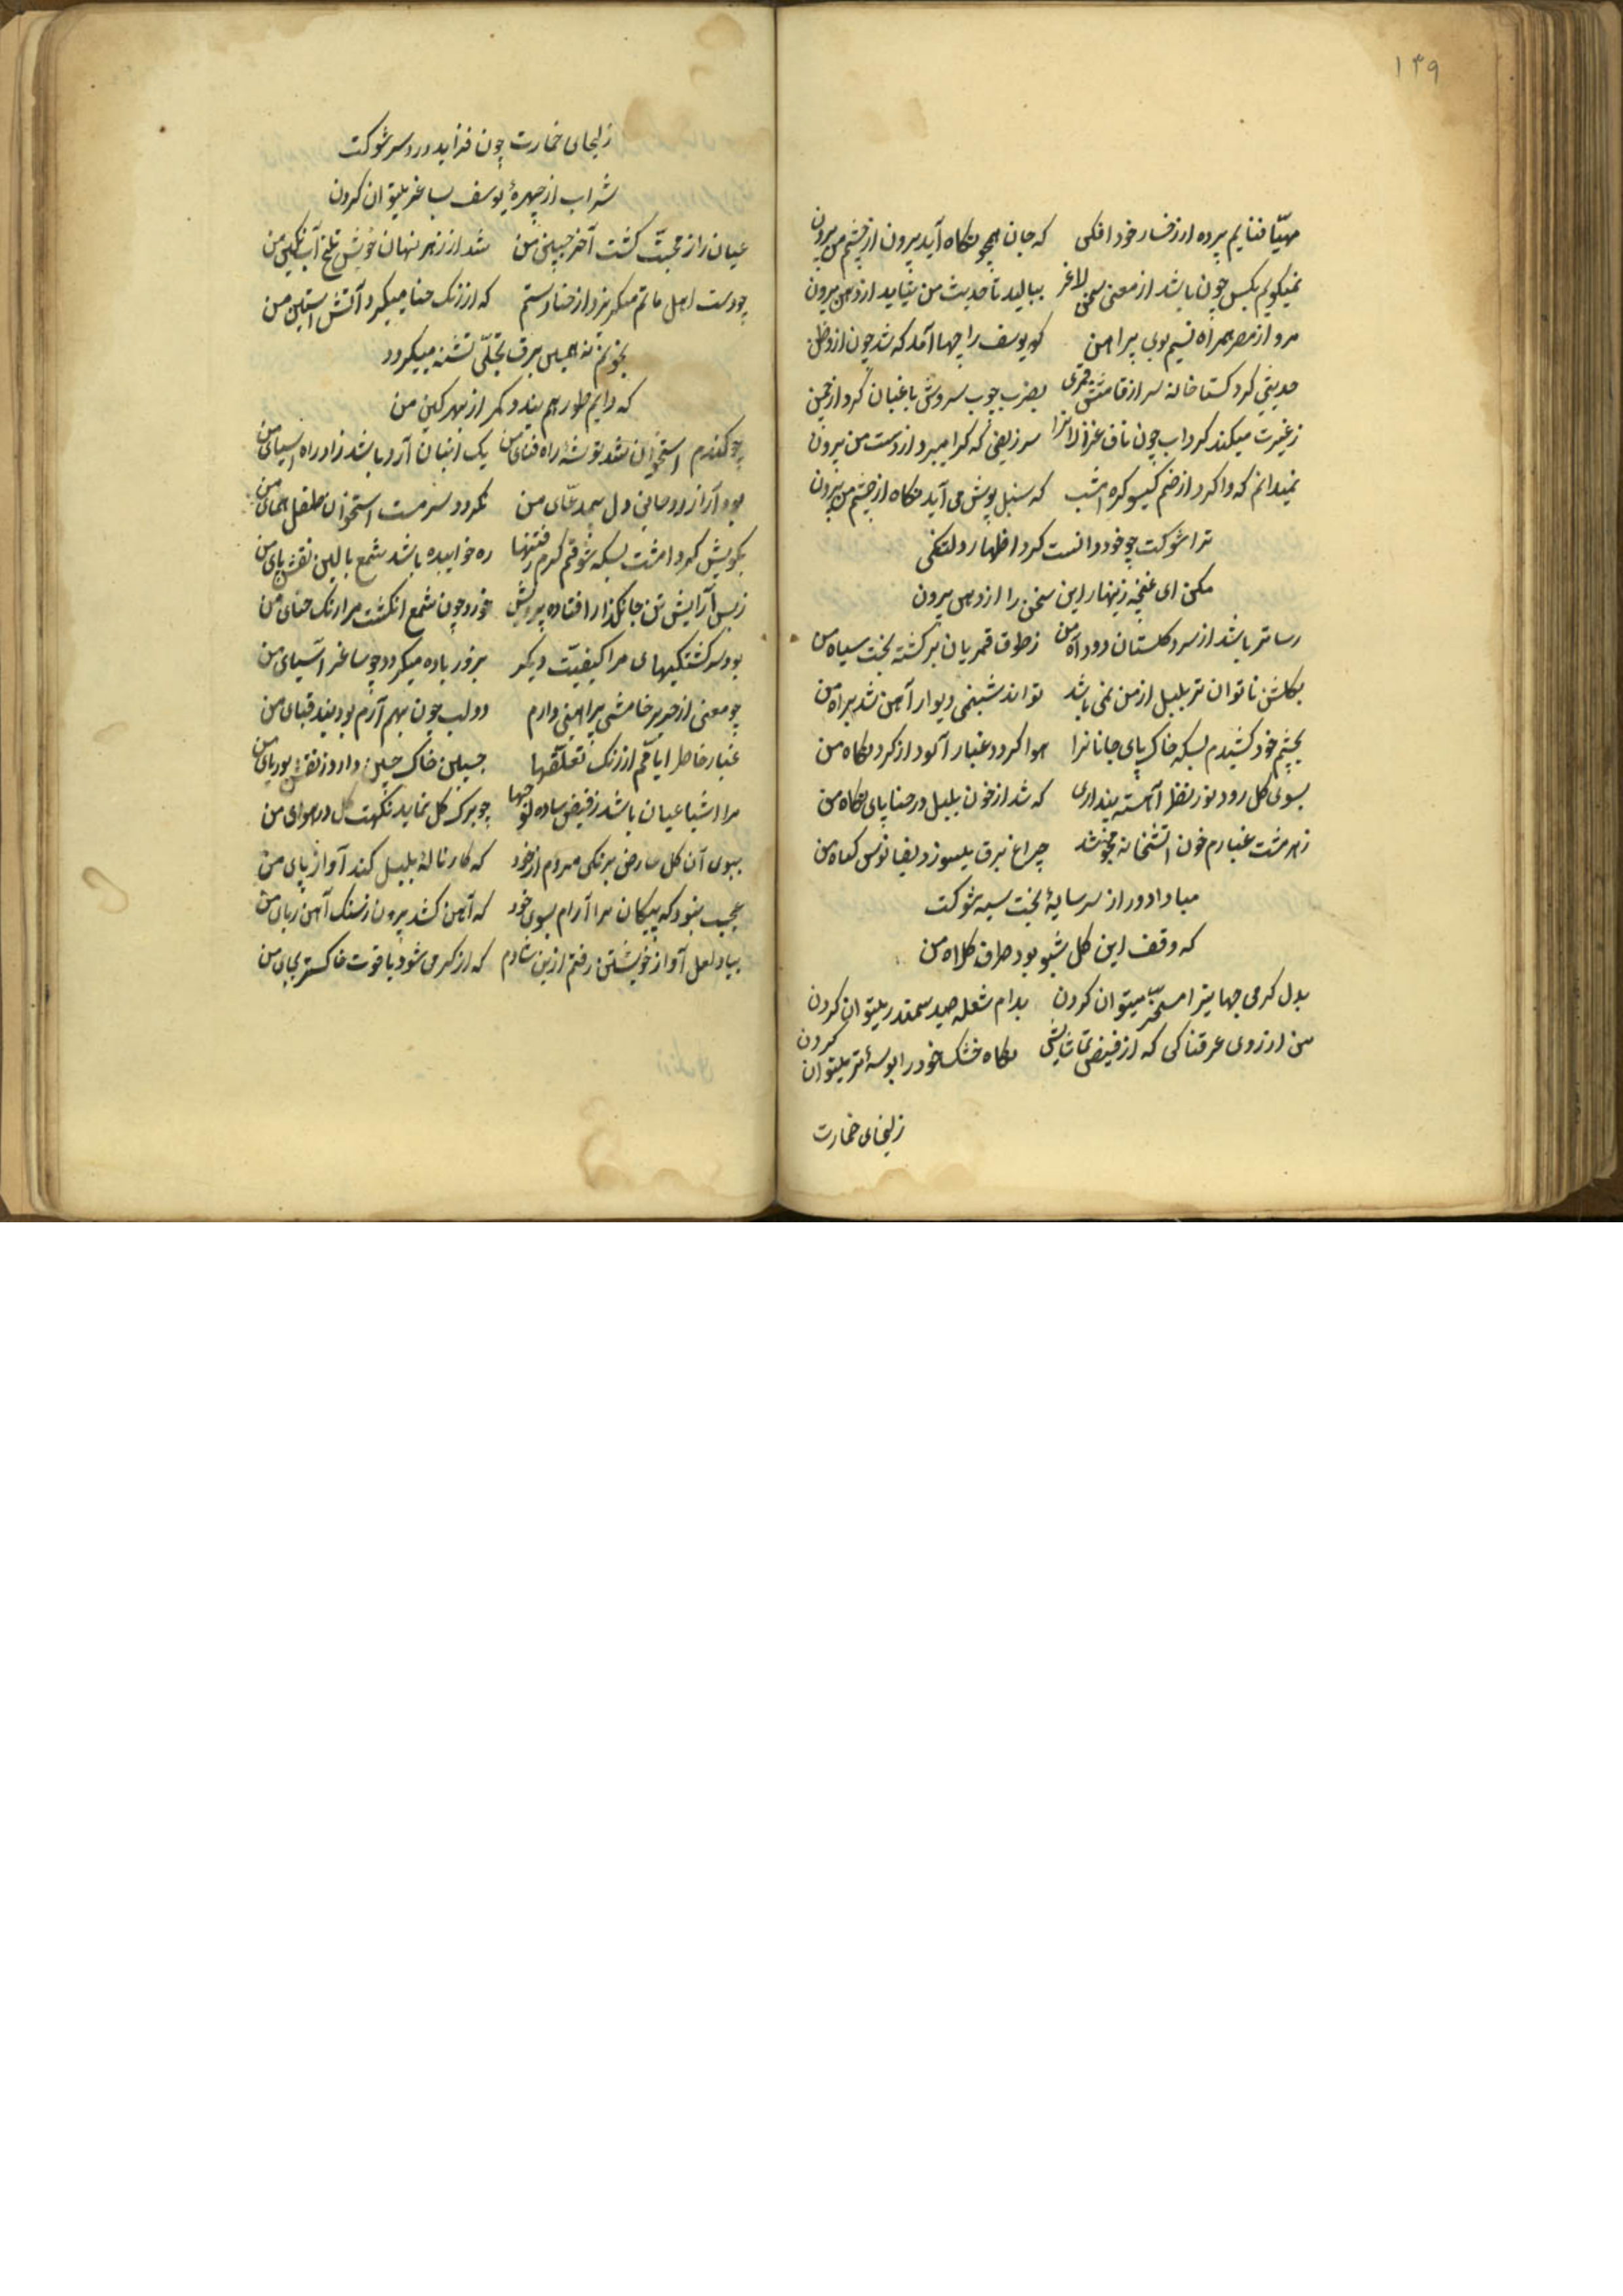 ۱۴۹
مهیّا فنایم پرده از رخسار خود افکی که جان همچو نکاه آید بیرون از چشم من بیرون
نمیکویم بکس چون باشد از معنی سخن لاغر ببالید تا حدیث من نیاید از دهن بیرون
مرو از مصر همراه نسیم بوی پیراهن که یوسف را چها آمد که شد چون از وطن
حدیثی کرد کستاخانه سر از قامتش قمری بضرب چوب سروش باغبان کرد از چمن
ز غیرت میکند کرداب چون ناف غزالانرا سر زلفی که کرا میبرد از دست من بیرون
نمیدانم که وا کرد از خم کیسو کره امشب که سنبل پوش می آید نکاه از چشم من بیرون
ترا شوکت چو خود دانست کرد اظهار دلتنکی
مکن ای غنچه زینهار این سخن را از دهن بیرون
رساتر باشد از سرو کلستان دود آه من ز طوق قمریان برکشته بخت سیاه من
بکلشن ناتوان تر بلبل از من نمی باشد تواند شبنمی دیوار آهن شد براه من
بچشم خود کشیدم بسکه خاک پای جانانرا هوا کردد غبار آلود از کرد نکاه من
بسوی کل رود نور نظر آهسته پنداری که شد از خون بلبل در حنا پای نکاه من
ز هر مشت غبارم خون آتشخانه میجوشد چراغ برق میسوزد بفانوس کیاه من
مبادا دور از سر سایهٔ بخت سیه شوکت
که وقف این کل شببو بود طرف کلاه من
بدل کرمی جهانیرا مسخر میتوان کردن بدام شعله صید سمندر میتوان کردن
من از روی عرقناکی که از فیض تماشایش نکاه خشک خود را بوسهٔ تر میتوان کردن
زلیخای خمارت
زلیخای خمارت چون فزاید درد سر شوکت
شراب از چهرهٔ یوسف بساغر میتوان کردن
عیان راز محبّت کشت آخر جبین من شد از زهر نهان خویش تلخ آب نکین من
چو دست اهل ماتم میکریزد از حنا دستم که از رنک حنا میکیرد آتش آستین من
بخونم نه همین برق تجلّی تشنه میکردد
که دایم طور هم بندد کمر از بهر کین من
چو کندم استخوان شد توشه راه فنای من یک انبان آرد باشد زاد راه آسیای من
بود آزاد روحانی دل بیمدعّای من نکردد سرمست استخوان طفل همای من
بکویش کرد امشب بسکه شوقم کرم رفتنها ره خوابیده باشد شمع بالین نقش پای من
ز بس آرایش تن جانکداز افتاده پروش خورد چون شمع انکشت مرا رنک حنای من
بود سرکشتکیهای مرا کیفیّت دیکر بزور باده میکردد چو ساغر آسیای من
چو معنی از حریر خامشی پیراهنی دارم دو لب چون بهم آرم بود بند قبای من
غبار خاطر ایاقم از رنک تعلّقها جبین خاک چین دارد ز نقش بوریای من
مرا اشیا عیان باشد ز فیض ساده لوحیها چو برک کل نماید نکهت کل در هوای من
ببوی آن کل عارض برنکی میروم از خود که کار ناله بلبل کند آواز پای من
عجب نبود که پیکان مرا آرام بسوی خود که آهن کشد بیرون ز سنک آهن ربای من
بیاد لعل او از خویشتن رفتم ازین شادم که از کرمی شود یاقوت خاکستر بجای من